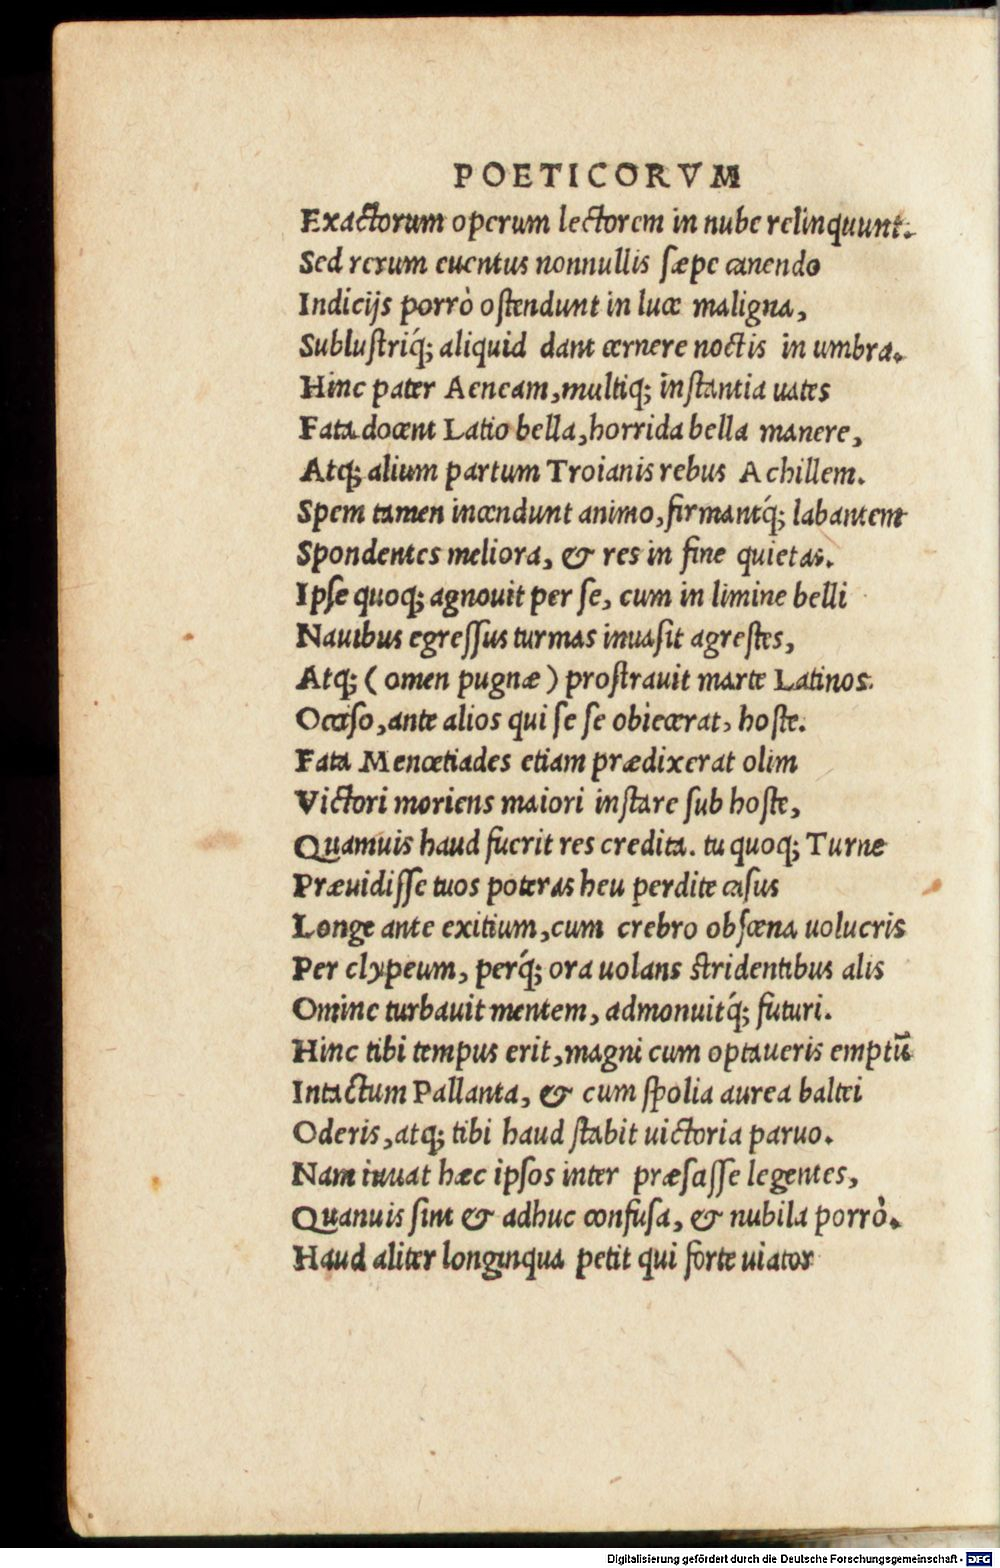 POETICORVM
Exactorum operum lectorem in nube relinquunt.
Sed rerum euentus nonnullis sæpe canendo
Indicijs porrò ostendunt in luce maligna,
Sublustriq́; aliquid dant cernere noctis in umbra.
Hinc pater Aeneam, multiq; instantia uates
Fata docent Latio bella, horrida bella manere,
Atq; alium partum Troianis rebus Achillem.
Spem tamen incendunt animo, firmantq́; labantem
Spondentes meliora, & res in fine quietas.
Ipse quoq; agnouit per se, cum in limine belli
Nauibus egressus turmas inuasit agrestes,
Atq; (omen pugnæ) prostrauit marte Latinos.
Occiso, ante alios qui se se obiecerat, hoste.
Fata Menœtiades etiam prædixerat olim
Victori moriens maiori instare sub hoste,
Quamuis haud fuerit res credita. tu quoq; Turne
Præuidisse tuos poteras heu perdite casus
Longe ante exitium, cum crebro obscœna uolucris
Per clypeum, perq́; ora uolans stridentibus alis
Omine turbauit mentem, admonuitq́; futuri.
Hinc tibi tempus erit, magni cum optaueris emptū
Intactum Pallanta, & cum spolia aurea baltei
Oderis, atq; tibi haud stabit uictoria paruo.
Nam iuuat hæc ipsos inter præsasse legentes,
Quanuis sint & adhuc confusa, & nubila porrò.
Haud aliter longinqua petit qui forte uiator
Digitalisierung gefördert durch die Deutsche Forschungsgemeinschaft - DFG